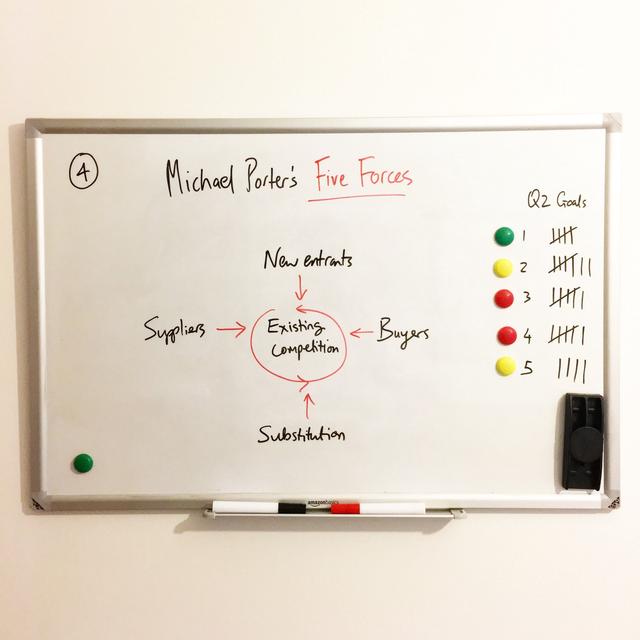 4
Michael Porter's Five Forces
New entrants
Suppliers
Existing
Competition
Buyers
Substitution
Q2 Goals
1
2
3
4
5
amazonbasics